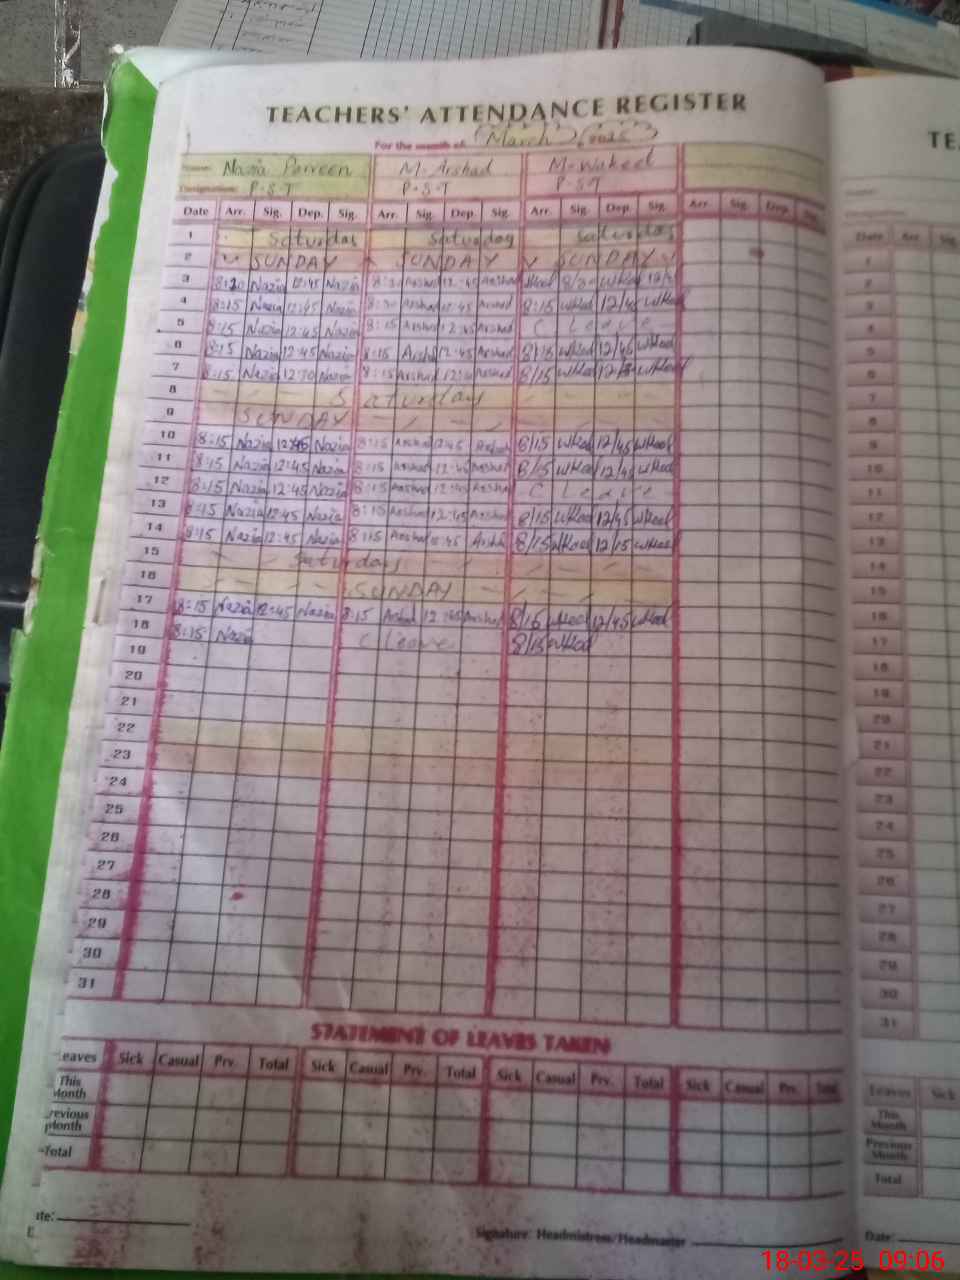 TEACHERS' ATTENDANCE REGISTER
For the month of March 2025
Name: Nazia Parveen M. Arshad M. Wakeel
Designation: P.S.T P.S.T P.S.T
Date Arr. Sig. Dep. Sig. Arr. Sig. Dep. Sig. Arr. Sig. Dep. Sig. Arr. Sig. Dep. Sig.
1 Saturday Saturday Saturday
2 SUNDAY SUNDAY SUNDAY
3 8:20 Nazia 12:45 Nazia Arshad 12:45 Arshad
4 8:15 Nazia 12:45 Nazia Arshad 12:45 Arshad 8:15 wkeel 12/45 wkeel
5 8:15 Nazia 12:45 Nazia 8:15 Arshad 12:45 Arshad C Leave
6 8:15 Nazia 12:45 Nazia 8:15 Arshad 12:45 Arshad 8/15 wkeel 12/45 wkeel
7 8:15 Nazia Nazia 8:15 Arshad Arshad 8/15 wkeel wkeel
8 Saturday
9 SUNDAY
10 8:15 Nazia 12:45 Nazia 8:15 Arshad 12:45 Arshad 8/15 wkeel 12/45 wkeel
11 8:15 Nazia 12:45 Nazia 8:15 Arshad 12:45 Arshad 8/15 wkeel 12/45 wkeel
12 8:15 Nazia 12:45 Nazia 8:15 Arshad 12:45 Arshad C Leave
13 8:15 Nazia 12:45 Nazia 8:15 Arshad 12:45 Arshad 8/15 wkeel 12/45 wkeel
14 8:15 Nazia 12:45 Nazia 8:15 Arshad Arshad 8/15 wkeel 12/15 wkeel
15 Saturday
16 SUNDAY
17 8:15 Nazia 12:45 Nazia 8:15 Arshad 12:45 Arshad 8/15 wkeel 12/45 wkeel
18 8:15 Nazia C Leave 8/15 wkeel
19
20
21
22
23
24
25
26
27
28
29
30
31
STATEMENT OF LEAVES TAKEN
Leaves Sick Casual Prv. Total Sick Casual Prv. Total Sick Casual Prv. Total Sick Casual Prv. Total
This Month
Previous Month
Total
Signature: Headmistress/Headmaster
TE
Date Arr. Sig.
1
2
3
4
5
6
7
8
9
10
11
12
13
14
15
16
17
18
19
20
21
22
23
24
25
26
27
28
29
30
31
Leaves Sick
This Month
Previous Month
Total
Date:
18-03-25 09:06